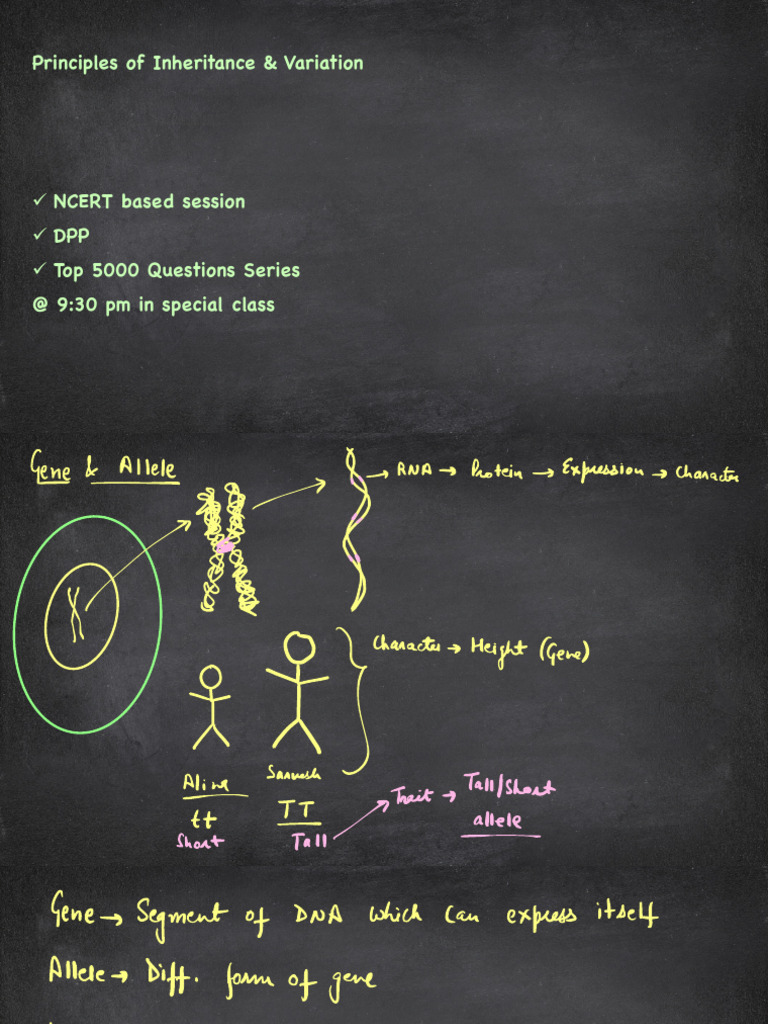 Principles of Inheritance & Variation
✓ NCERT based session
✓ DPP
✓ Top 5000 Questions Series
@ 9:30 pm in special class
Gene & Allele
→ RNA → Protein → Expression → Character
Character → Height (Gene)
Trait → Tall/Short
allele
tt
TT
Short
Tall
Gene → Segment of DNA which can express itself
Allele → Diff. form of gene